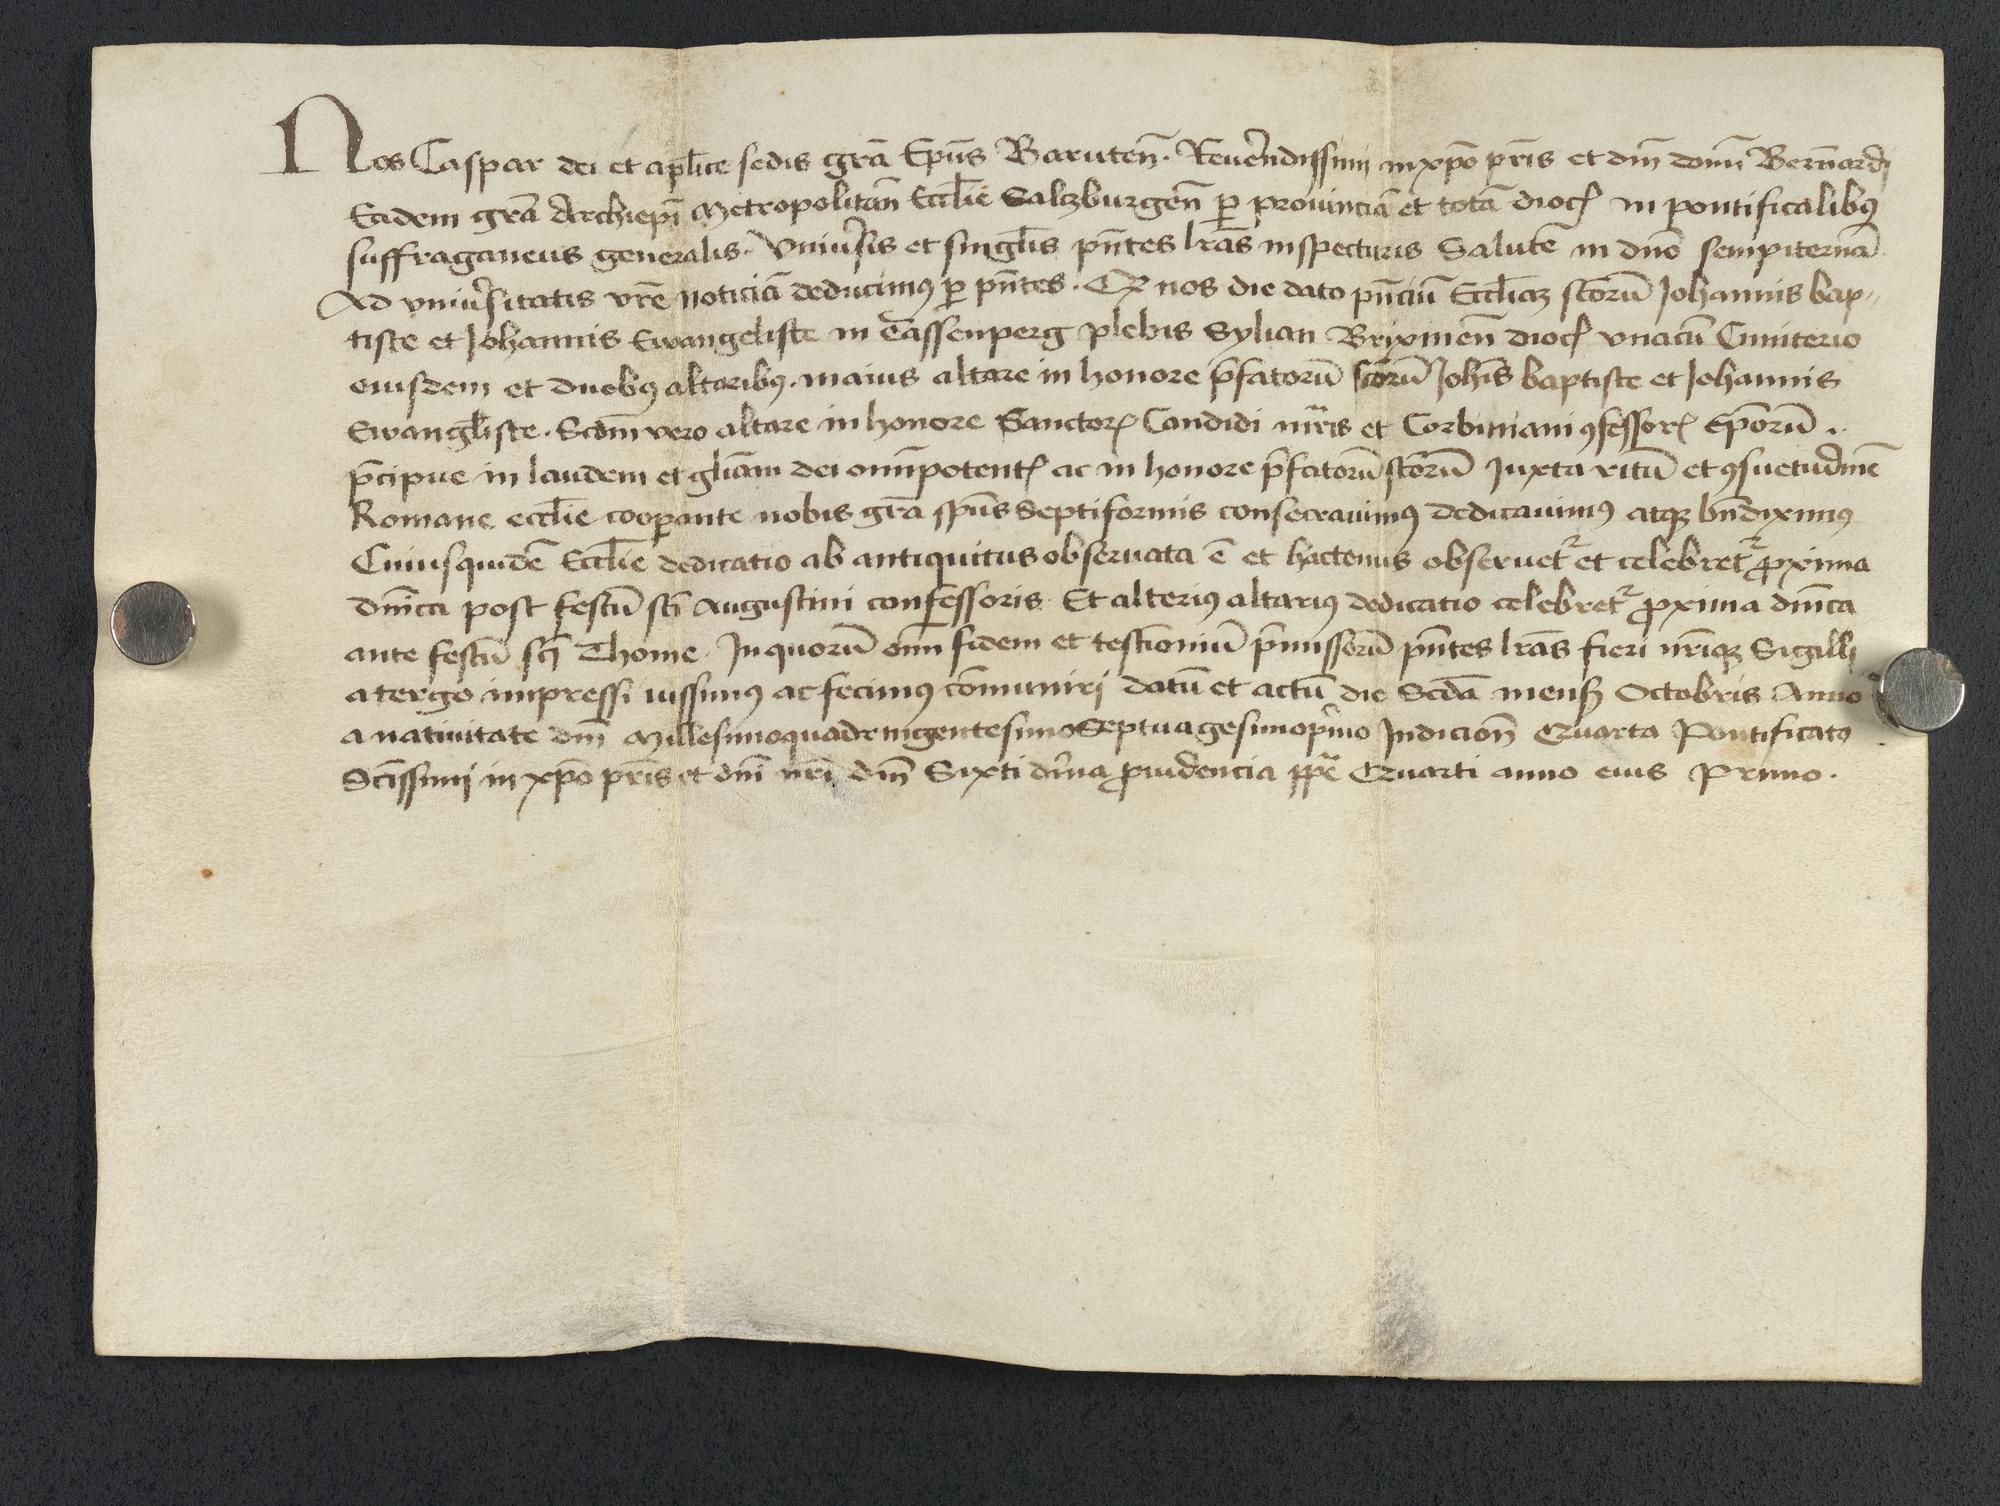 Nos Caspar dei et aplice sedis grā Epūs Baruteñ. Reuerendissimi in xp̄o pr̄is et dn̄i domī Bernardi
Eadem grā Archiepī Metropolitañ Eccl̄ie Salczburgeñ ꝑ prouinciā et totā dioc̄ in pontificalibꝰ
suffraganeus generalis. Vniuersis et singul̄is pn̄tes lr̄as inspecturis Salutē in dn̄o sempiternā
Ad vniuersitatis vr̄e noticiā deducimꝰ ꝑ pn̄tes. Qꝫ nos die dato pn̄ciū Eccl̄iaꝫ sctōrū Johannis bap〃
tiste et Johannis Ewangeliste in Cassenperg plebis Sylian Brixineñ dioc̄ vnacū Cimiterio
eiusdem et duobꝰ altaribꝰ. maius altare in honore p̄fatorū sctōrū Joh̄is baptiste et Johannis
Ewangl̄iste. Scd̄m vero altare in honore Sanctorꝝ Candidi mr̄is et Corbiniani ꝯfessorꝝ Ep̄orū ..
p̄cipue in laudem et gl̄iam dei omīpotentꝭ ac in honore p̄fatorū sctōrū Juxta ritū et ꝯsuetudinē
Romane eccl̄ie cooꝑante nobis grā spūs Septiformis consecrauimꝰ dedicauimꝰ atqꝫ bn̄diximꝰ
Cuiusquidē Eccl̄ie dedicatio ab antiquitus obseruata ē et hactenus obseruetᷣ et celebretᷣ ꝓxima
dn̄ica post festū sctī Augustini confessoris. Et alteriꝰ altariꝰ dedicatio celebretᷣ ꝓxima dn̄ica
ante festū sctī Thome. In quorū om̄i fidem et testimoniū p̄missorū pn̄tes lr̄as fieri nr̄iqꝫ Sigilli
a tergo impressi iussimꝰ ac fecimꝰ cōmuniri datū et actū die Scd̄a mensꝭ Octobris Anno
a natiuitate dn̄i Millesimoquadringentesimoseptuagesimoprimo Indicioñ Quarta Pontificatꝰ
Sctīssimi in xp̄o pr̄is et dn̄i nr̄i dn̄i Sixti diuīa ꝓuidencia pp̄e Quarti anno eius Primo.